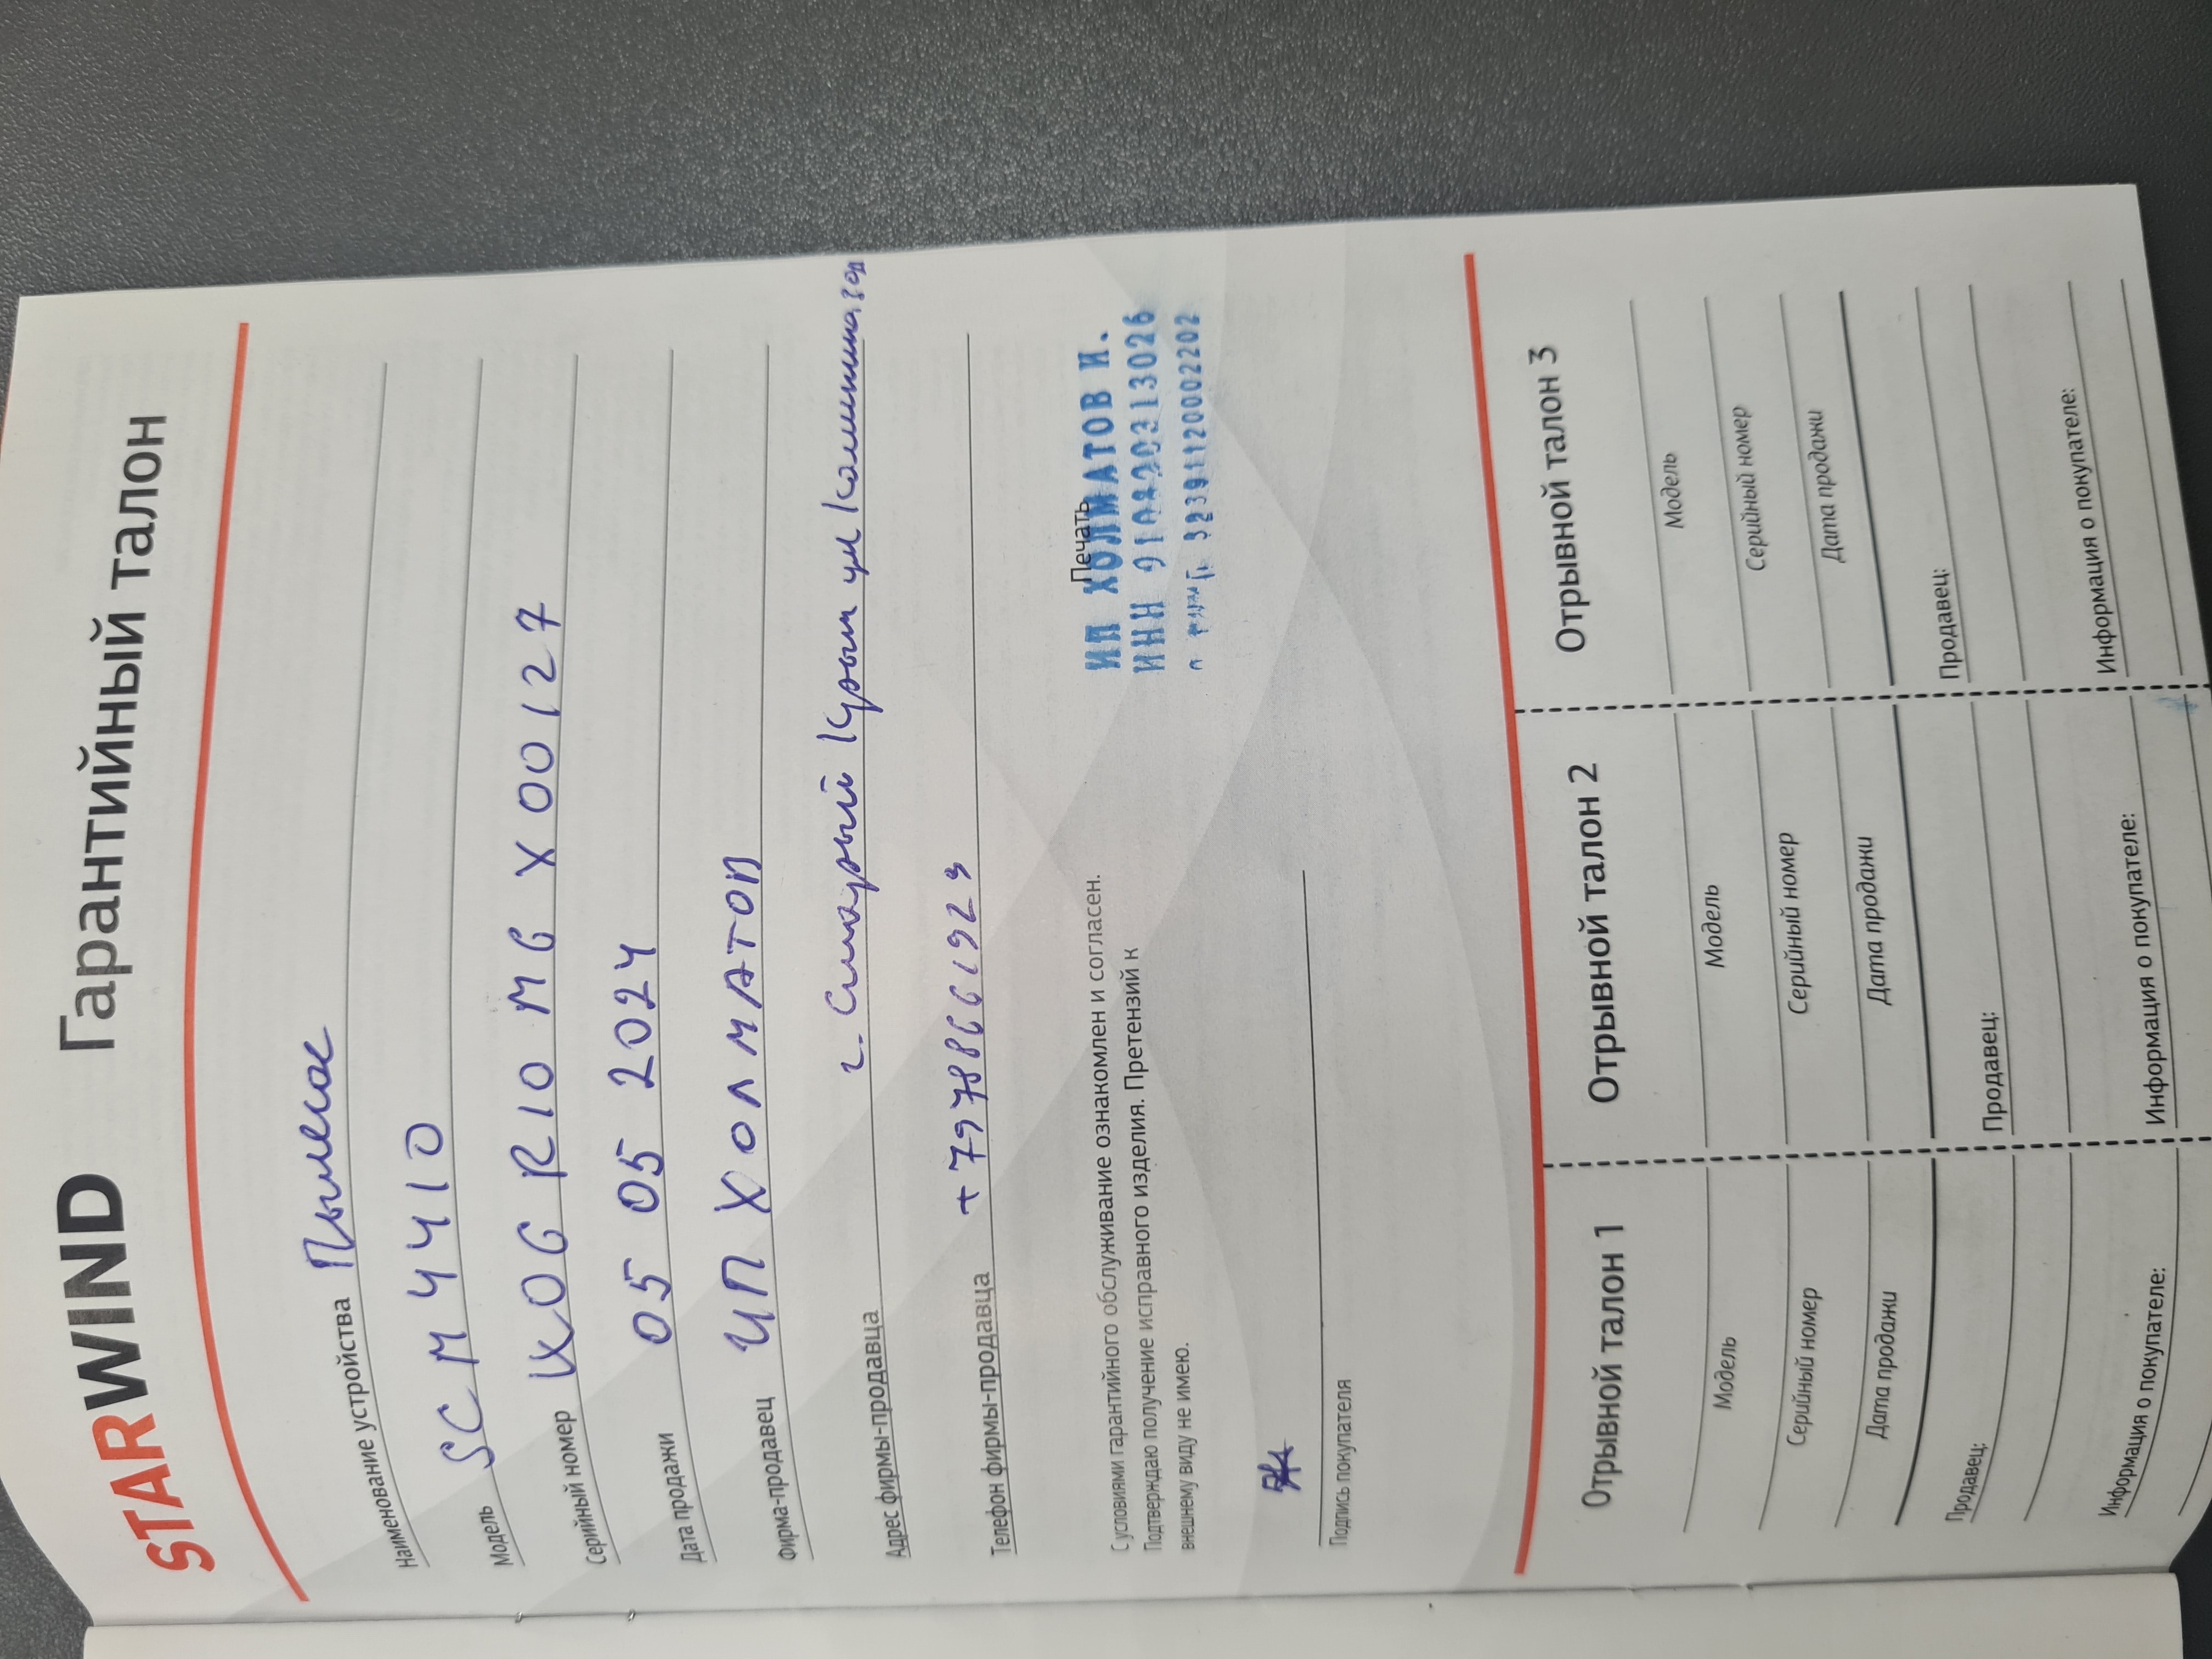 STARWIND Гарантийный талон
Наименование устройства Пылесос
Модель SCM4410
Серийный номер KOGR10MGX00127
Дата продажи 05 05 2024
Фирма-продавец ИП ХОЛМАТОВ
Адрес фирмы-продавца г. Старый Крым ул Калинина
Телефон фирмы-продавца +79788661923
С условиями гарантийного обслуживание ознакомлен и согласен.
Подтверждаю получение исправного изделия. Претензий к
внешнему виду не имею.
Печать
ИП ХОЛМАТОВ И.
ИНН
Подпись покупателя
Отрывной талон 1
Модель
Серийный номер
Дата продажи
Продавец:
Информация о покупателе:
Отрывной талон 2
Модель
Серийный номер
Дата продажи
Продавец:
Информация о покупателе:
Отрывной талон 3
Модель
Серийный номер
Дата продажи
Продавец:
Информация о покупателе: